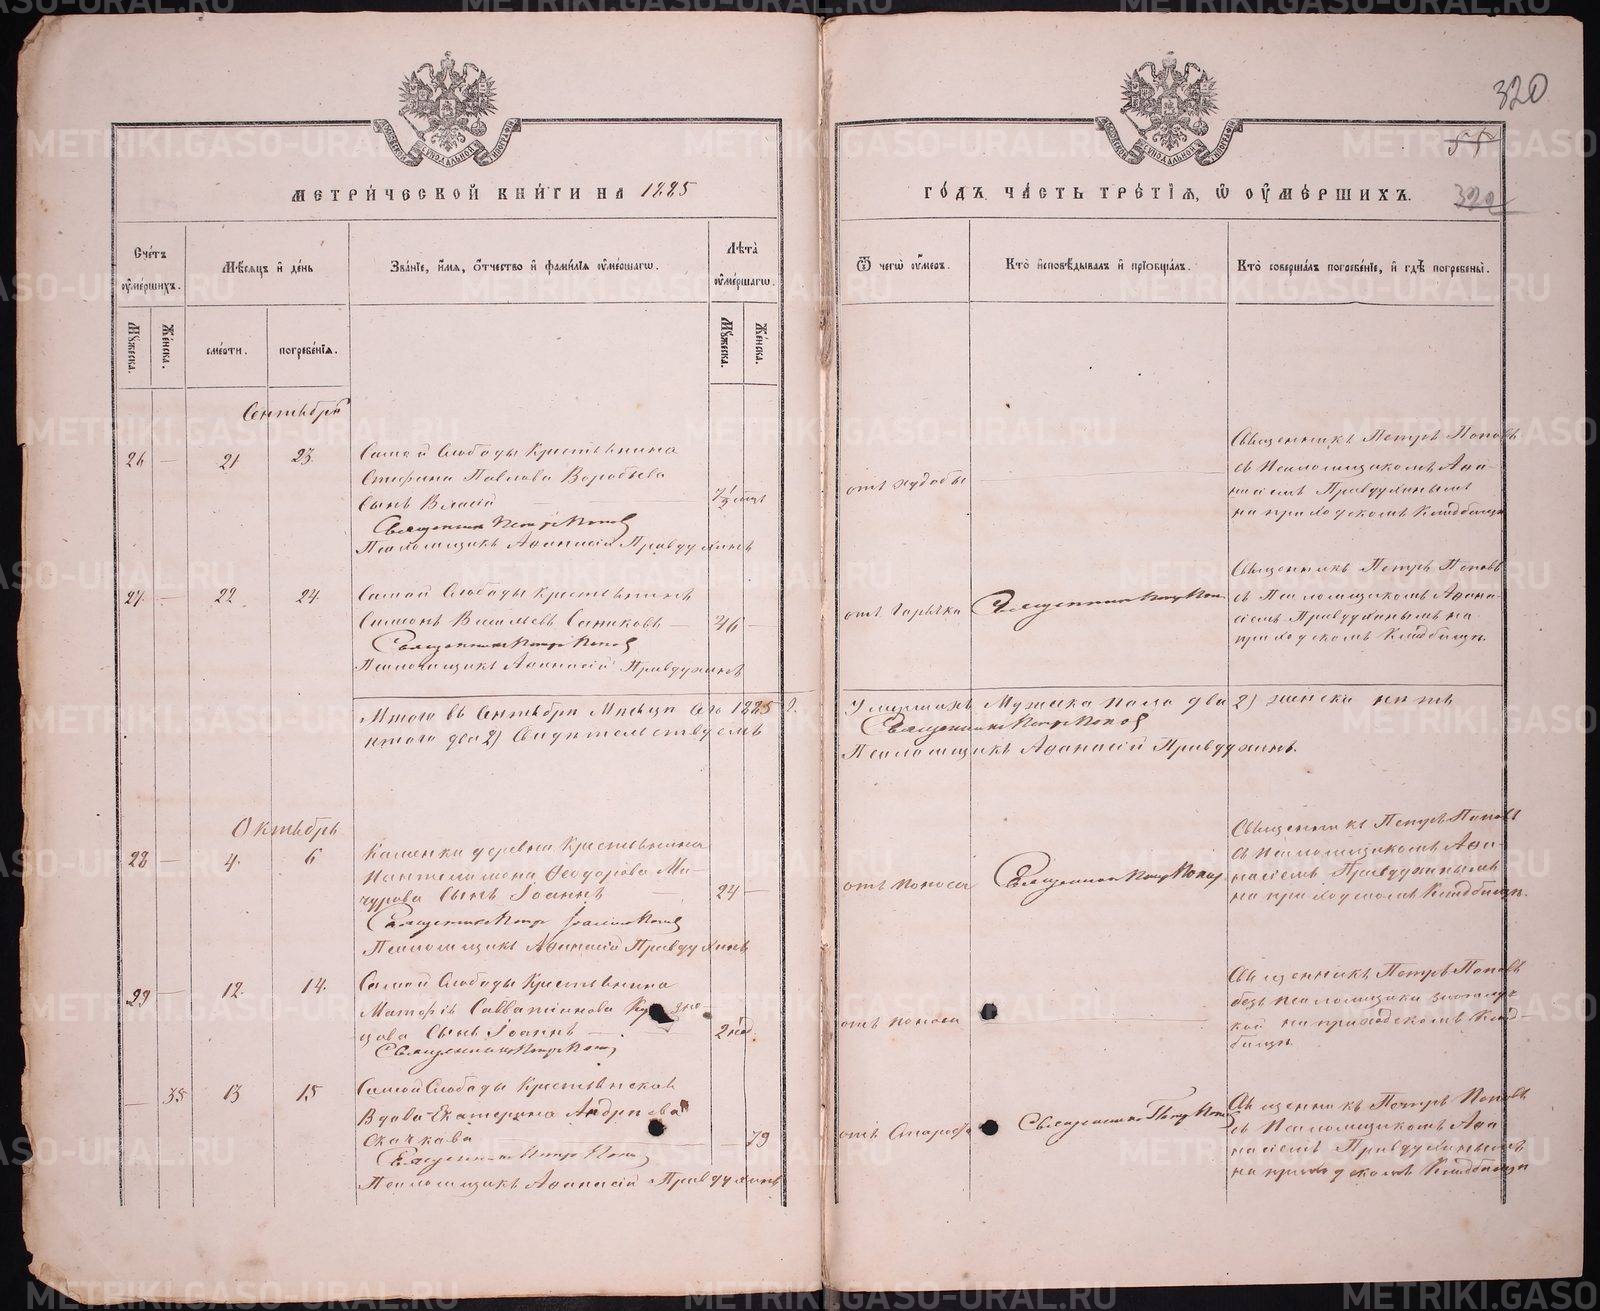 320
55
322
МЕТРИ́ЧЕСКОЙ КНИ́ГИ НА 1885
ГО́ДЪ ЧА́СТЬ ТРЕ́ТІЯ, Ѡ ОУ҆МЕ́РШИХЪ.
Сче́тъ оу҆ме́ршихъ.
Мѣ́сяцъ и҆ де́нь
Зва́ніе, и҆́мя, ѻ҆́тчество и҆ фами́лія оу҆ме́ршагѡ.
Лѣ́та оу҆ме́ршагѡ.
Ѿ чегѡ̀ оу҆́меръ.
Кто̀ и҆сповѣ́дывалъ и҆ пріѻбща́лъ.
Кто̀ соверша́лъ погребе́ніе, и҆ гдѣ̀ погребены̀.
Мꙋ́жеска.
Же́нска.
сме́рти.
погребе́нія.
Мꙋ́жеска.
Же́нска.
Сентябрь
26 — 21 23
Самой Слободы Крестьянина
Стефана Павлова Воробьева
Сынъ Власій
Священникъ Петръ Поповъ
Псаломщикъ Афанасій Правдухинъ
от худобы
Священникъ Петръ Поповъ
съ Псаломщикомъ Афа-
насіемъ Правдухинымъ
на приходскомъ Кладбищѣ
27 — 22 24
Самой Слободы Крестьянинъ
Симонъ Васильевъ Санниковъ — 46 —
Священникъ Петръ Поповъ
Псаломщикъ Афанасій Правдухинъ
отъ Горячка
Священникъ Петръ Попов
Священникъ Петръ Поповъ
съ Псаломщикомъ Афана-
сіемъ Правдухинымъ на
приходскомъ Кладбищѣ.
Итого въ Сентябрѣ Мѣсяцѣ сего 1885 г.
Умершихъ Мужеска пола два 2) женска нѣтъ
итого два 2) Свидѣтельствуемъ
Священникъ Петръ Поповъ
Псаломщикъ Афанасій Правдухинъ.
Октябрь
28 — 4. 6
Каменки деревни Крестьянина
Пантелимона Феодорова Ма-
чурова Сынъ Іоаннъ 24 —
Священникъ Петръ Поповъ
Псаломщикъ Афанасій Правдухинъ
отъ поноса
Священникъ Петръ Поповъ
Священникъ Петръ Поповъ
съ Псаломщикомъ Афа-
насіемъ Правдухинымъ
на приходскомъ Кладбищѣ.
29 — 12. 14.
Самой Слободы Крестьянина
Матфія Савватіинова
Сынъ Іоаннъ 2 нѣд.
Священникъ Петръ Поповъ
отъ поноса
Священникъ Петръ Поповъ
безъ псаломщика
на приходскомъ Клад-
бищѣ.
— 35 13 15
Самой Слободы Крестьянская
Вдова Екатерина Андреева
Скачкова 79
Священникъ Петръ Поповъ
Псаломщикъ Афанасій Правдухинъ
отъ Старости
Священникъ Петръ Поповъ
Священникъ Петръ Поповъ
съ Псаломщикомъ Афа-
насіемъ Правдухинымъ
на приходскомъ Кладбищѣ
METRIKI.GASO-URAL.RU